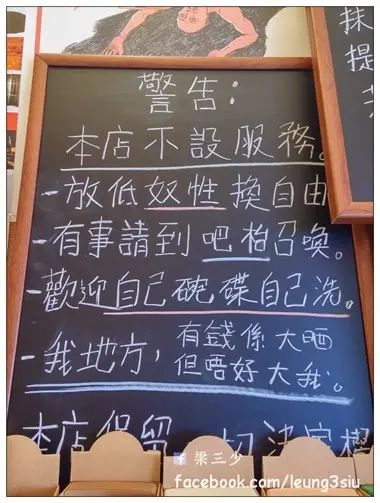 警告:
本店不設服務。
-放低奴性換自由
-有事請到吧枱召喚。
-歡迎自己碗碟自己洗。
-我地方,有錢係大晒
但唔好大我。
本店保留一切決定權
抹
提
梁三少
facebook.com/leung3siu